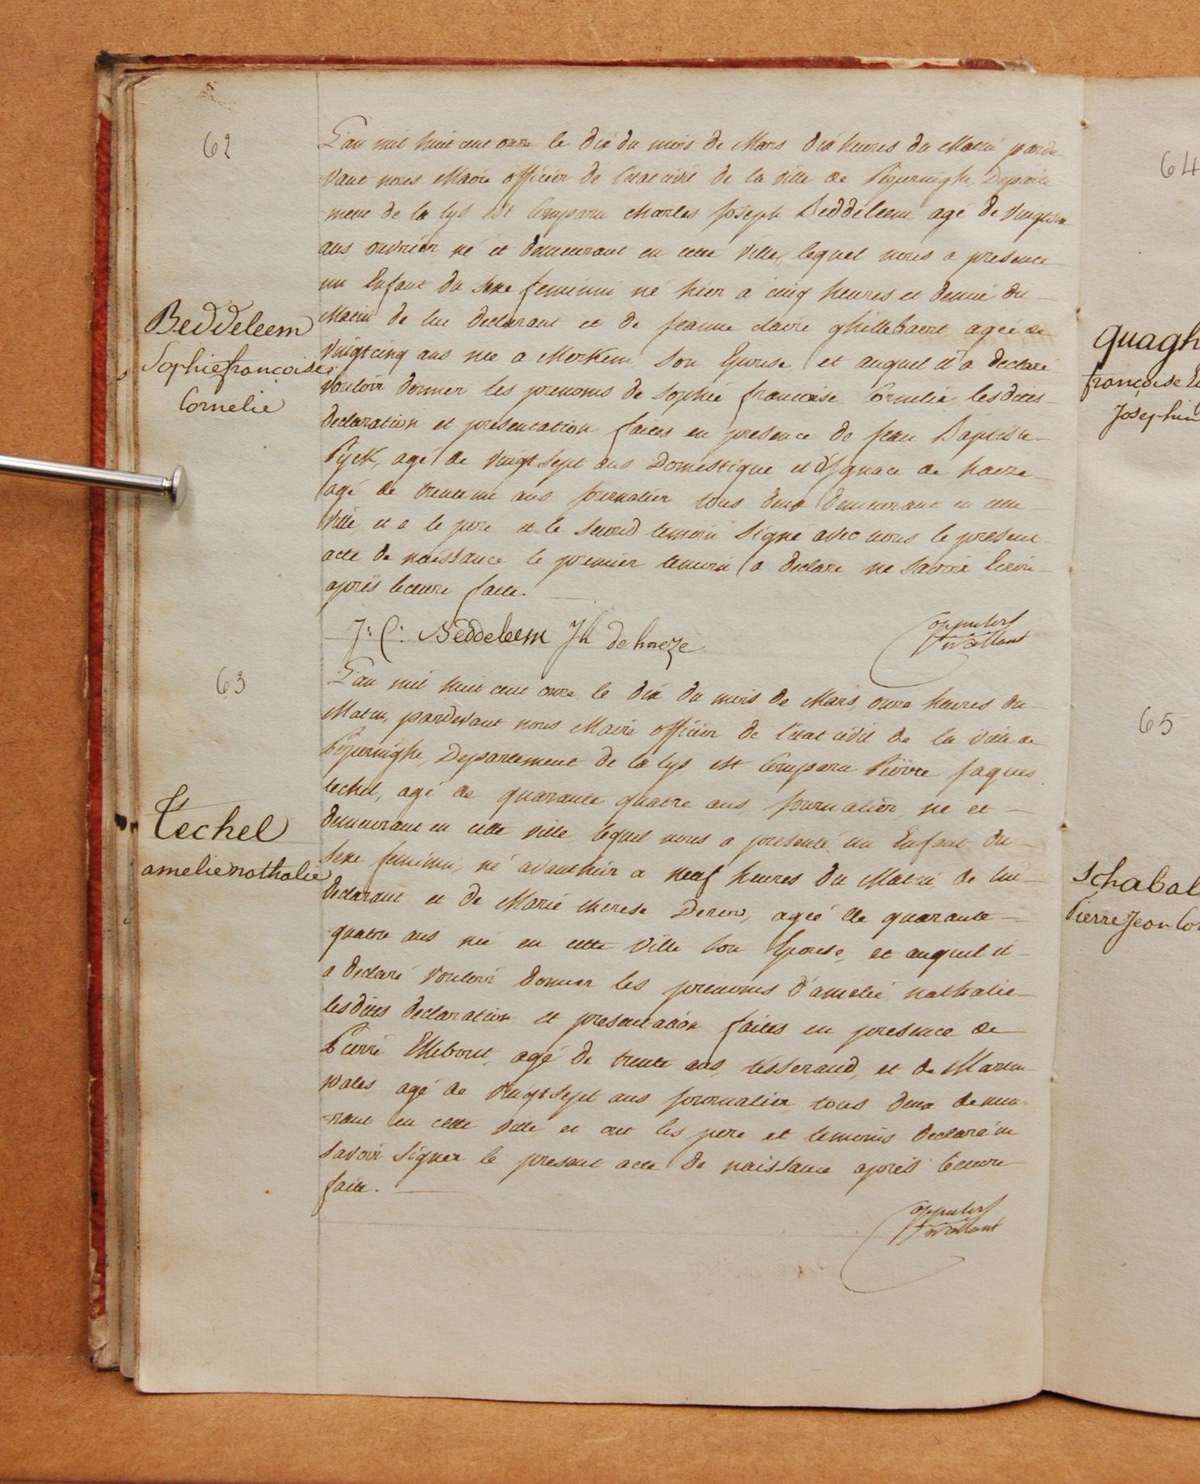 62
Beddeleem
Sophie françoise
Cornelie
L'an mil huit cent onze le dix du mois de Mars dix heures du Matin parde
vant nous Maire officier de l'état civil de la ville de Poperinghe, Departe
ment de la Lys est comparu Charles Joseph Beddeleem agé de
ans ouvrier né et demeurant en cette ville, lequel nous a presenté
un Enfant du sexe feminin né hier a cinq heures et demie du
Matin de lui declarant et de Jeanne Claire Ghillebaert agée de
vingt cinq ans née a Merkem son Epouse, et auquel il a declaré
vouloir donner les prenoms de Sophie francoise Cornelie lesdites
declaration et presentation faites en presence de Jean Baptiste
Pyck, agé de vingt sept ans Domestique et d'Ignace de haeze
agé de trente un ans journalier tous deux demeurant en cette
ville, et a le pere et le second temoin signé avec nous le present
acte de naissance le premier temoin a declaré ne savoir Ecrire
après lecture faite.
J: C: Beddeleem J h de haeze
63
Techel
amelie nathalie
L'an mil huit cent onze le dix du mois de Mars, onze heures du
Matin, pardevant nous Maire officier de l'état civil de la ville de
Poperinghe, Departement de la Lys est comparu Pierre Jaques
techel, agé de quarante quatre ans, journalier, né et
demeurant en cette ville lequel nous a presenté un Enfant du
sexe feminin, né avanthier a neuf heures du Matin de lui
declarant et de Marie therese agée de quarante
quatre ans née en cette ville son Epouse, et auquel il
a declaré vouloir donner les prenoms d'amelie nathalie
lesdites declaration et presentation faites en presence de
Pierre agé de trente ans, tisserand, et de Martin
wales, agé de vingt sept ans journalier tous deux demeu
rant en cette ville et ont les pere et temoins declaré ne
savoir signer le present acte de naissance après lecture
faite.
64
quagh
françoise
Josephin
65
Schabal
Pierre Jean Cor